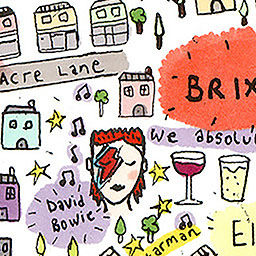 Acre Lane
BRIX
We absolu
David
Bowie
arman
El